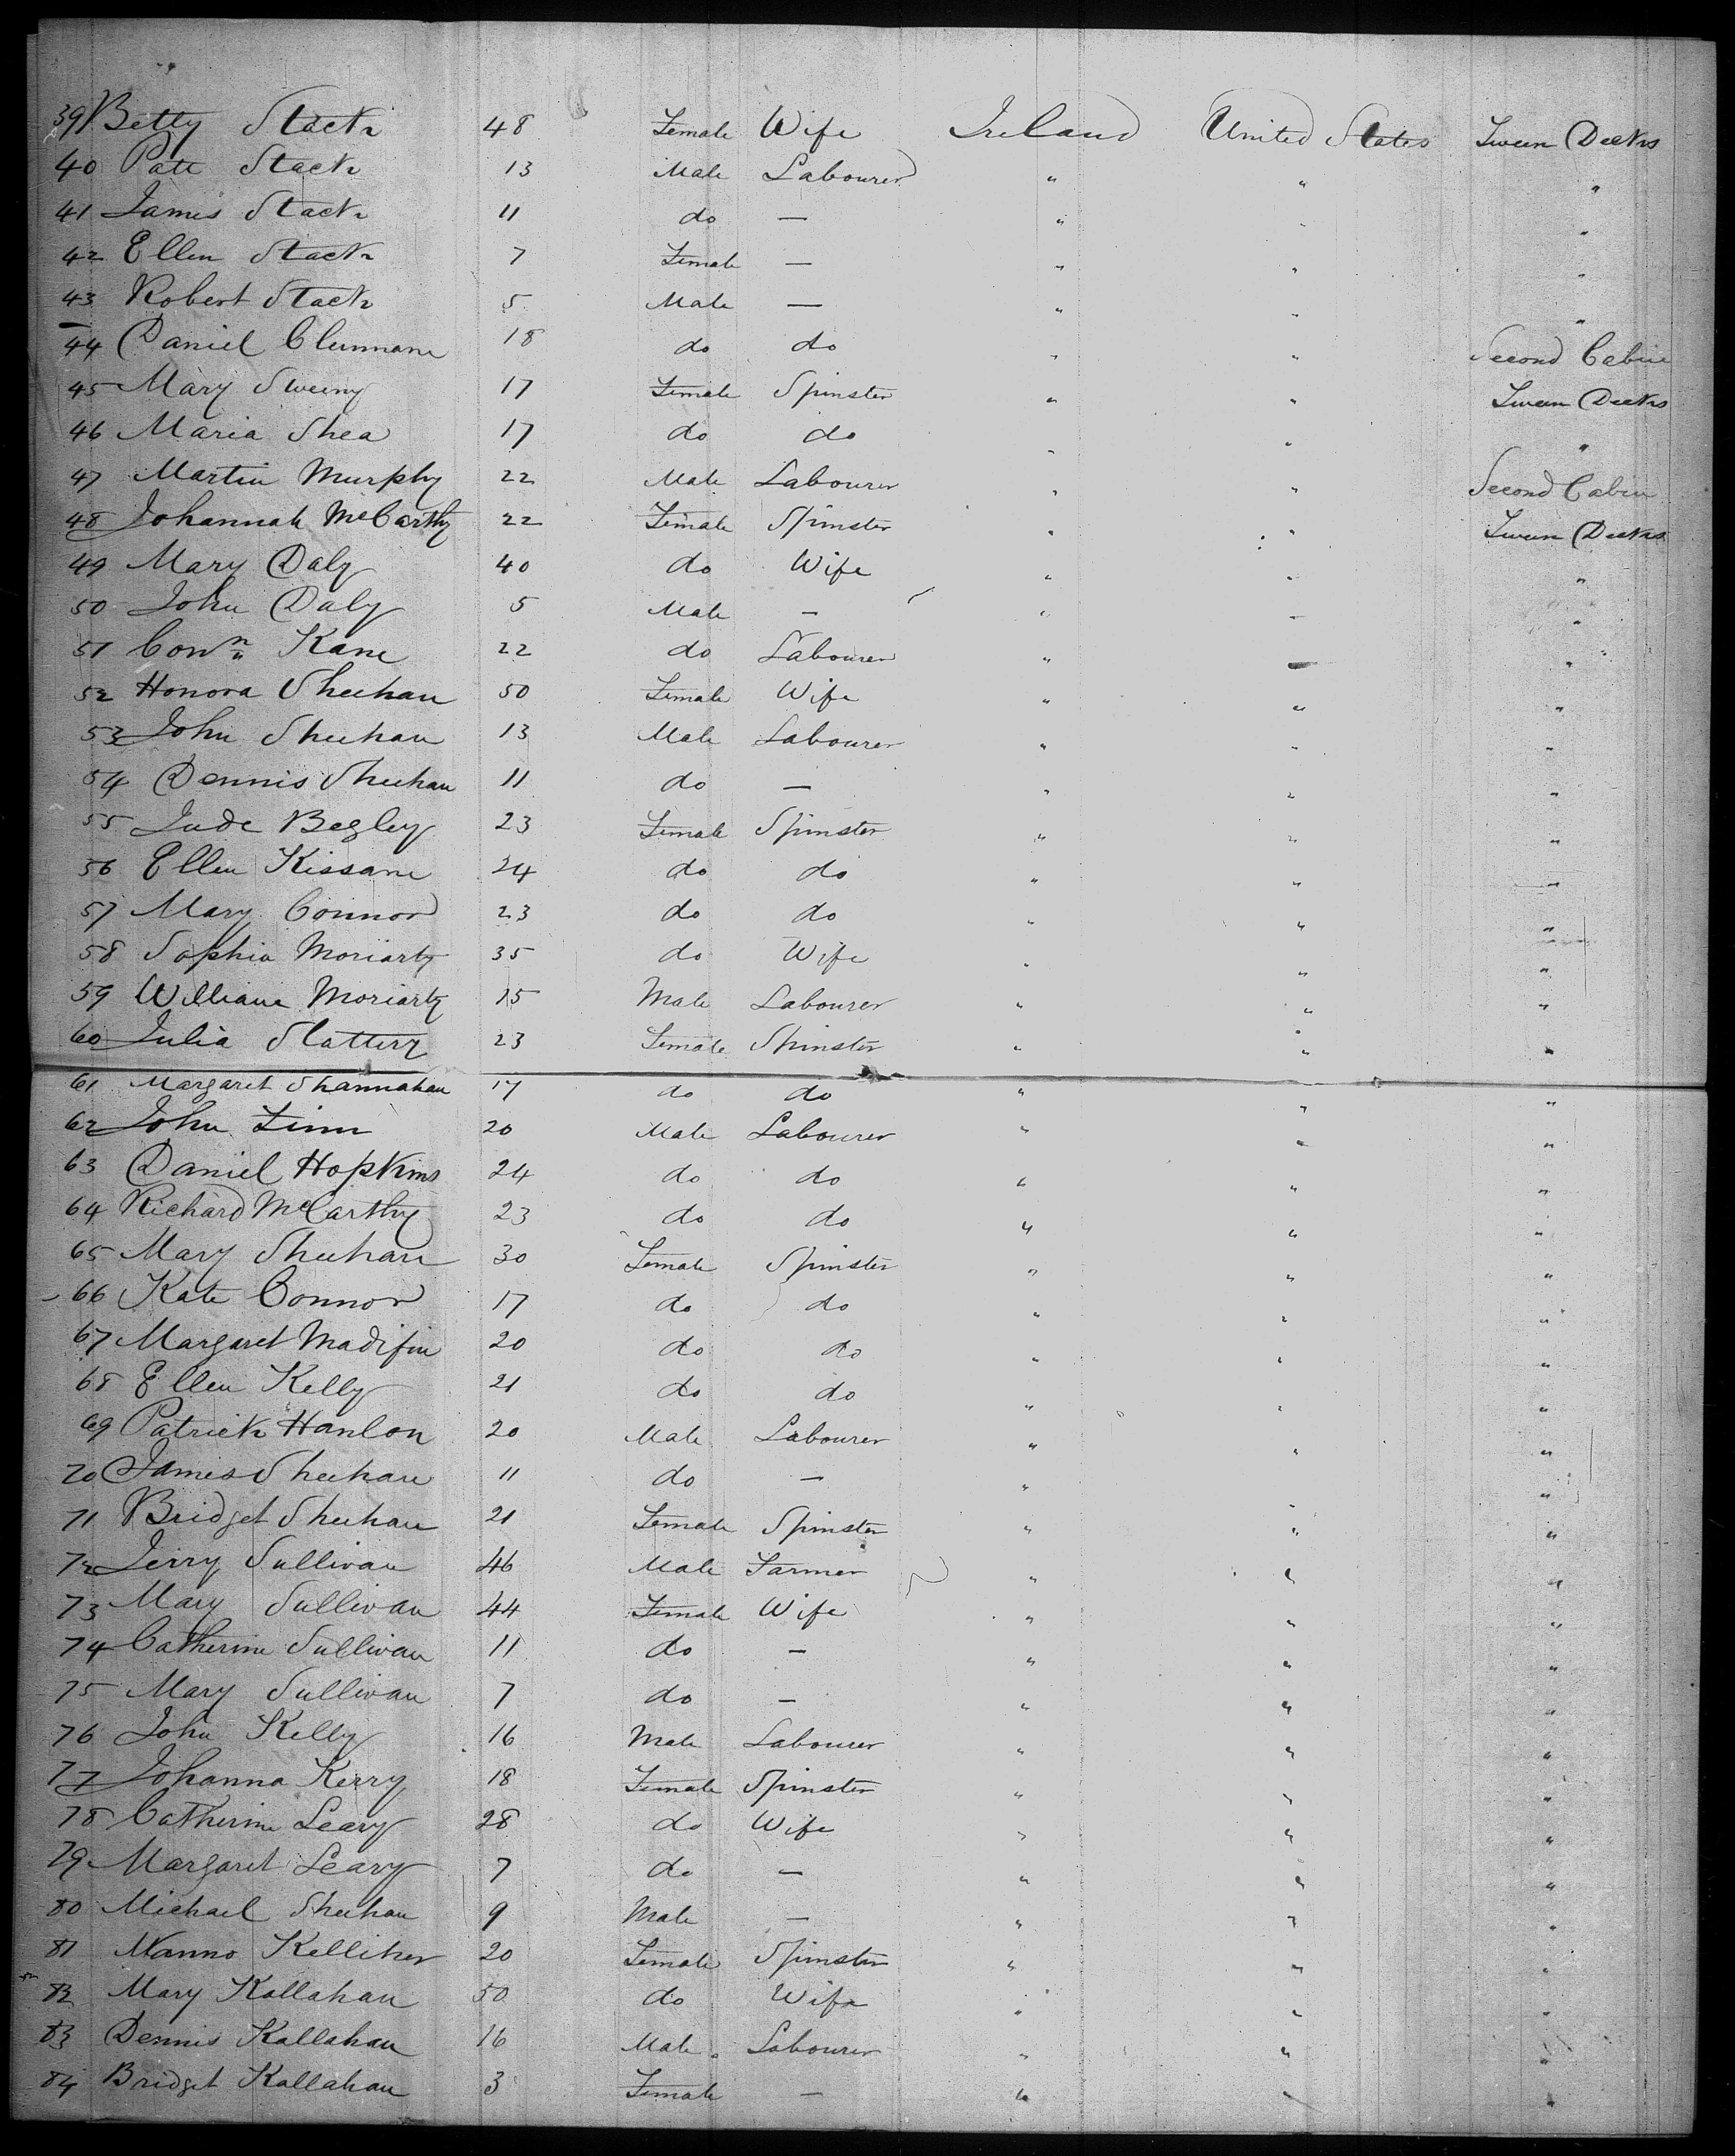 39 Betty Stack 48 Female Wife Ireland United States Tween Decks
40 Patt Stack 13 Male Labourer " " "
41 James Stack 11 do — " " "
42 Ellen Stack 7 Female — " " "
43 Robert Stack 5 Male — " " "
44 Daniel 18 do do " " Second Cabin
45 Mary Sweeny 17 Female Spinster " " Tween Decks
46 Maria Shea 17 do do " " "
47 Martin Murphy 22 Male Labourer " " Second Cabin
48 Johannah McCarthy 22 Female Spinster " " Tween Decks
49 Mary Daly 40 do Wife " " "
50 John Daly 5 Male — " " "
51 Kane 22 do Labourer " " "
52 Honora Sheehan 50 Female Wife " " "
53 John Sheehan 13 Male Labourer " " "
54 Dennis Sheehan 11 do — " " "
55 Jude Begley 23 Female Spinster " " "
56 Ellen Kissane 24 do do " " "
57 Mary Connor 23 do do " " "
58 Sophia Moriarty 35 do Wife " " "
59 William Moriarty 15 Male Labourer " " "
60 Julia Slattery 23 Female Spinster " " "
61 Margaret Shannahan 17 do do " " "
62 John Finn 20 Male Labourer " " "
63 Daniel Hopkins 24 do do " " "
64 Richard McCarthy 23 do do " " "
65 Mary Sheehan 30 Female Spinster " " "
66 Kate Connor 17 do do " " "
67 Margaret Madifin 20 do do " " "
68 Ellen Kelly 21 do do " " "
69 Patrick Hanlon 20 Male Labourer " " "
70 James Sheehan 11 do — " " "
71 Bridget Sheehan 21 Female Spinster " " "
72 Jerry Sullivan 46 Male Farmer " " "
73 Mary Sullivan 44 Female Wife " " "
74 Catherine Sullivan 11 do — " " "
75 Mary Sullivan 7 do — " " "
76 John Kelly 16 Male Labourer " " "
77 Johanna Kerry 18 Female Spinster " " "
78 Catherine Leary 28 do Wife " " "
79 Margaret Leary 7 do — " " "
80 Michael Sheehan 9 Male — " " "
81 Nanno Kelliher 20 Female Spinster " " "
82 Mary Kallahan 50 do Wife " " "
83 Dennis Kallahan 16 Male Labourer " " "
84 Bridget Kallahan 3 Female — " " "